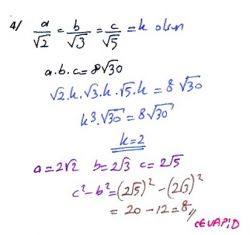 4/ a/√2 = b/√3 = c/√5 = k olsun
a.b.c = 8√30
√2.k.√3.k.√5.k = 8√30
k³.√30 = 8√30
k=2
a = 2√2 b = 2√3 c = 2√5
c² - b² = (2√5)² - (2√3)²
= 20 - 12 = 8//
CEVAP: D